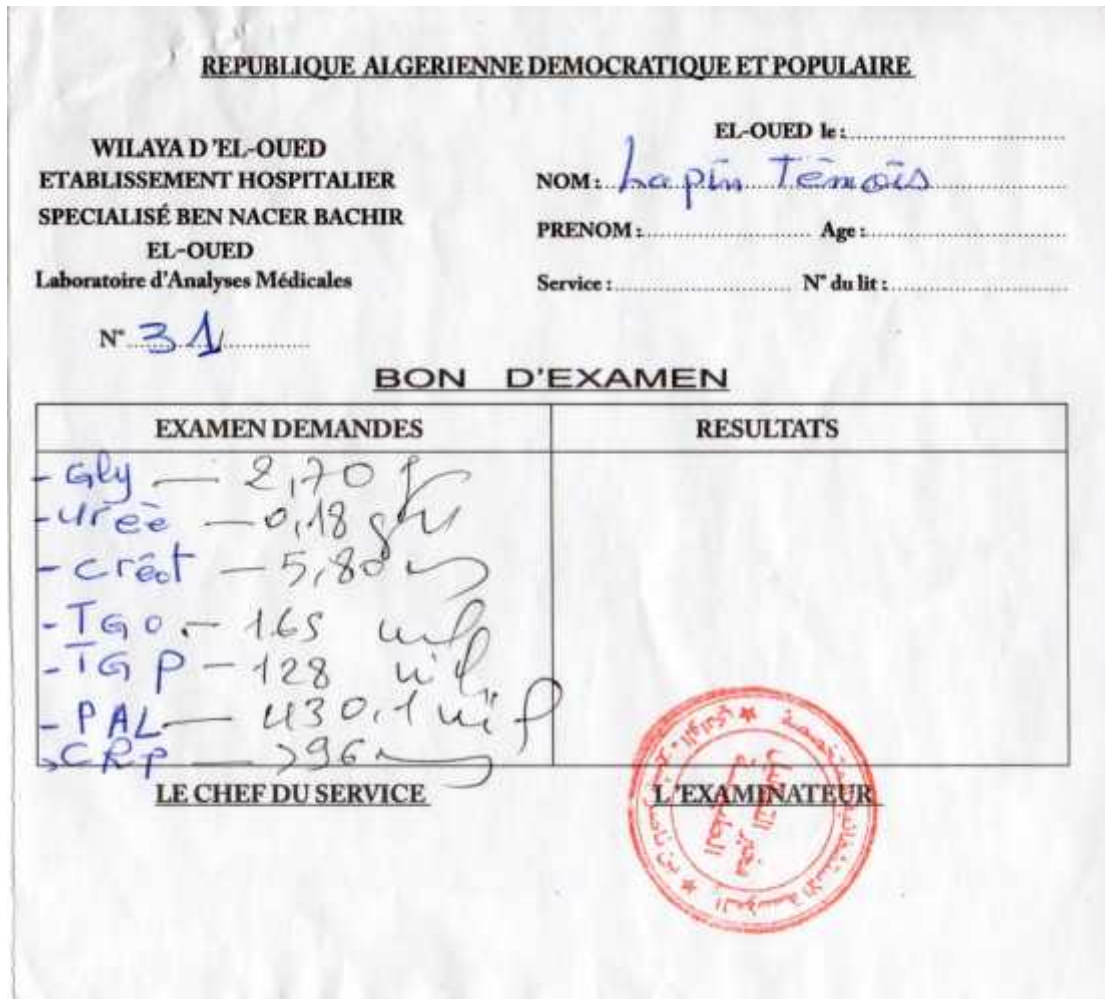 REPUBLIQUE ALGERIENNE DEMOCRATIQUE ET POPULAIRE
WILAYA D'EL-OUED
ETABLISSEMENT HOSPITALIER
SPECIALISÉ BEN NACER BACHIR
EL-OUED
Laboratoire d'Analyses Médicales
N° 31
EL-OUED le :
NOM : Lapin Témois
PRENOM : Age :
Service : N° du lit :
BON D'EXAMEN
EXAMEN DEMANDES RESULTATS
- Gly — 2,70
- Urée — 0,18
- créat — 5,80
- TGO. — 165
- TGP — 128
- PAL — 430,1
CRP — >96
LE CHEF DU SERVICE L'EXAMINATEUR